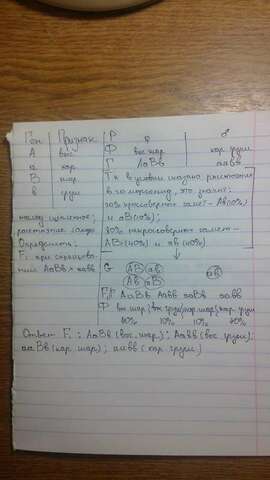 Ген | Признак | Р ♀ ♂
А | вос. Ф вос. шар кар. груш
а | кар. Г АаВв аавв
В | шар Т.к. в условии сказано, расстояние
в | груш в 20 морганид, это значит:
20% кроссоверных гамет - Ав (10%)
и аВ (10%);
расстояние 80% некроссоверных гамет -
Определить: АВ (40%) и ав (40%)
F₁ при скрещива-
нии АаВв × аавв G АВ ав ав
Ав аВ
F₁ Г АаВв Аавв ааВв аавв
Ф вос. шар | вос. груш | кар. шар | кар. груш
40% 10% 10% 40%
Ответ F₁: АаВв (вос. шар); Аавв (вос. груш);
ааВв (кар. шар); аавв (кар. груш)